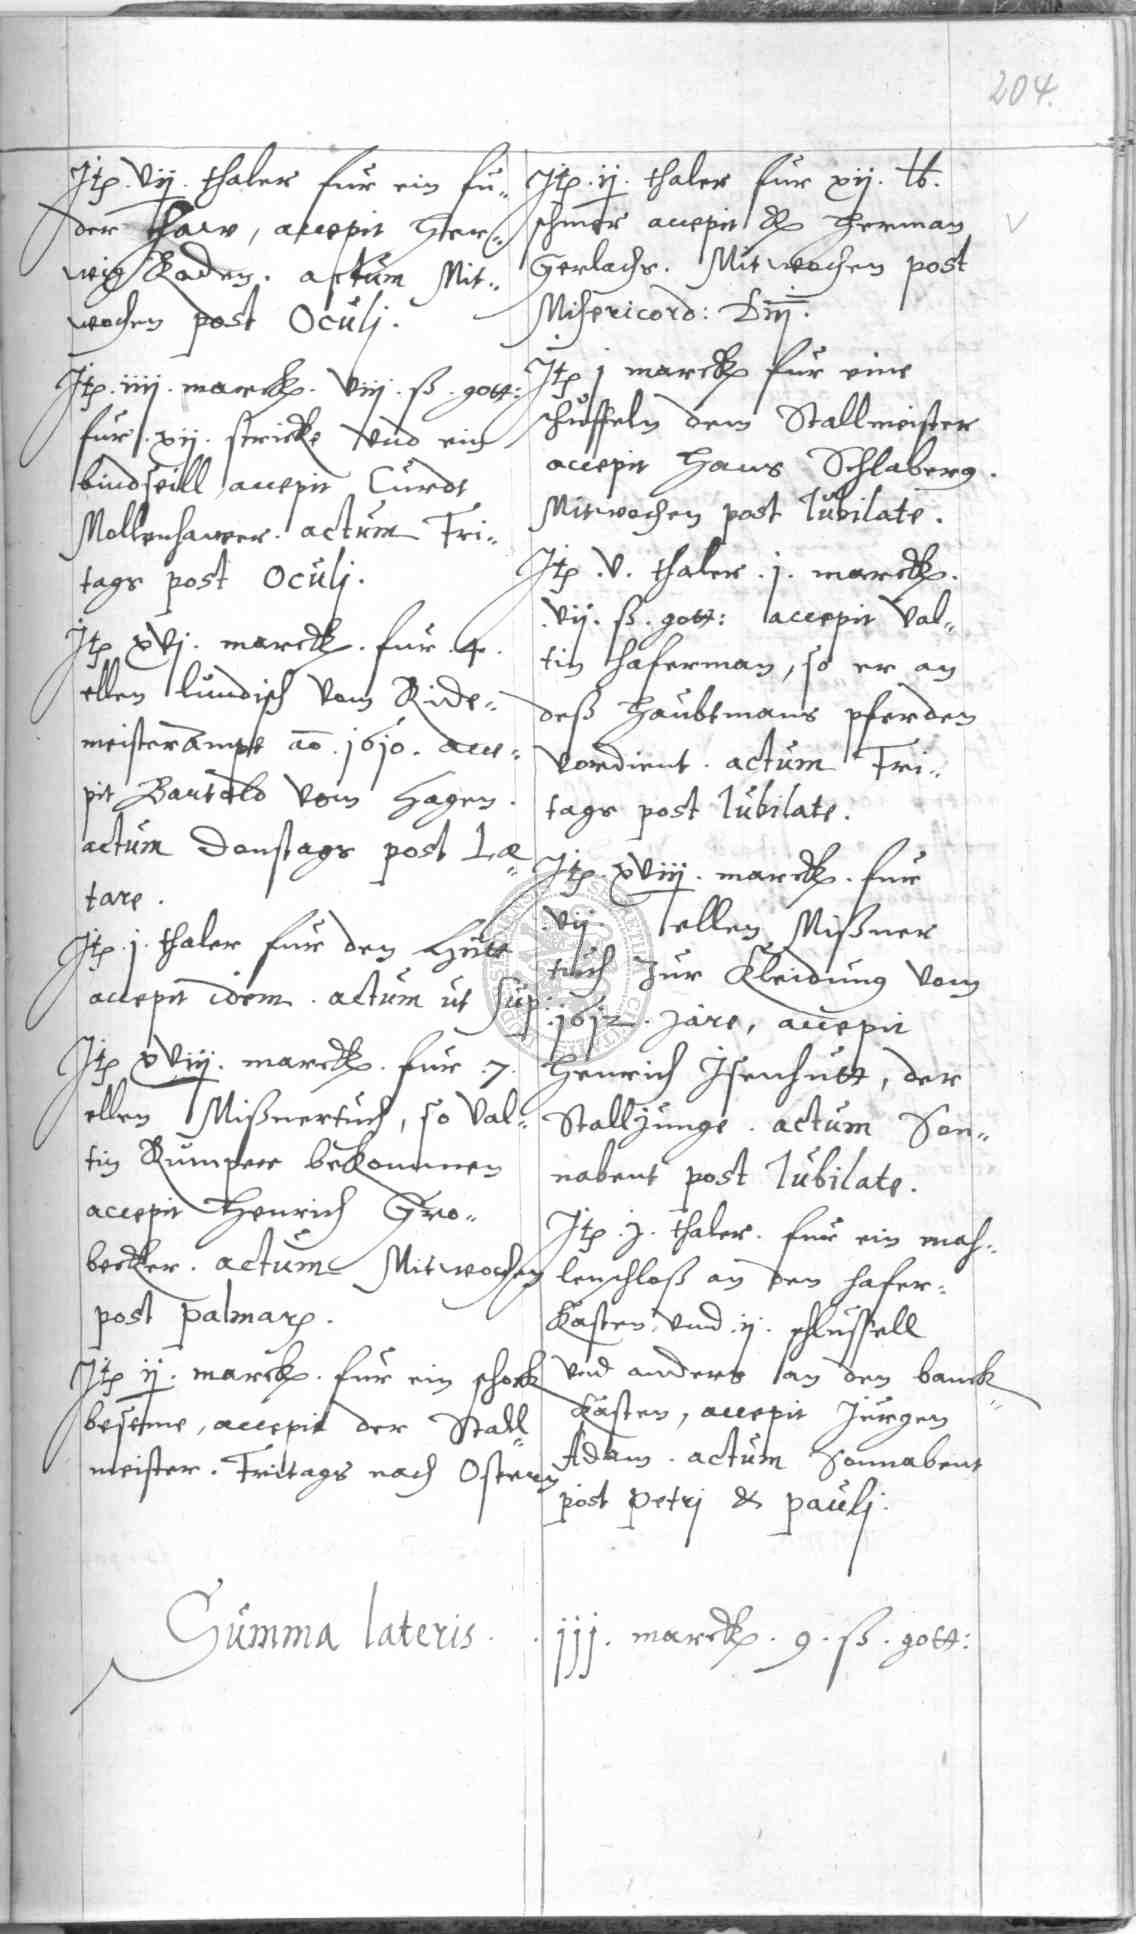 204.
Itp. vij. thaler fur ein fu„
der Haw, accepit Her„
wig Raden. actum Mit„
wochen post Oculj.
Itp. iiij. marck. viij. ß. gott:
fur. xij. stricke vnd ein
bindseill accepit Curdt
Mollenhawer. actum Fri„
tags post Oculj.
Itp xvj. marck. fur. 4.
ellen lundisch vom Ride„
meisterampt ao. 1610. acce„
pit Bartold vom Hagen.
actum Donstags post Læ„
tare.
Itp. j. thaler fur den Hutt
accepit idem. actum ut sup:
Itp xviij. marck. fur. 7.
ellen Mißnertuch, so Val„
tin Rumpee bekommen
accepit Henrich Gro„
becker. actum Mitwochen
post palmarp.
Itp ij. marck. fur ein schock
beseme, accepit der Stall„
meister. Fritags nach Ostern
Itp. ij. thaler fur xij. lb.
schmer accepit Herman
Gerlachs. Mitwochen post
Misericord: Dni.
Itp j marck fur eine
schuffeln dem Stallmeister
accepit Hans Schlaberg.
Mitwochen post Iubilate.
Itp. v. thaler. j. marck.
vij. ß. gott: accepit Val„
tin Haferman, so er an
deß Haubtmans pferden
vordient. actum Fri„
tags post Iubilate.
Itp. xviij. marck. fur
vij. ellen Mißner
tuch zur Kleidung vom
1612. jare, accepit
Henrich Isenhutt, der
Stalljunge. actum Son„
nabent post Iubilate.
Itp. j. thaler. fur ein mah„
lenschloß an den hafer„
kasten, vnd. ij. schlussell
vnd anders an den banck„
kasten, accepit Jurgen
Adam. actum Sonnabent
post Petrj & paulj.
Summa lateris. . jjj. marck. 9. ß. gott: